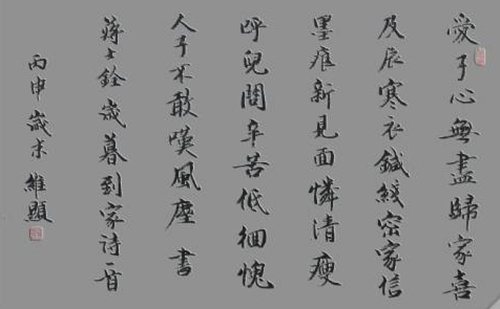 愛子心無盡歸家喜
及辰寒衣鍼綫密家信
墨痕新見面憐清瘦
呼兒問辛苦低徊愧
人子不敢嘆風塵 書
蔣士銓歲暮到家詩一首
丙申歲末維顯